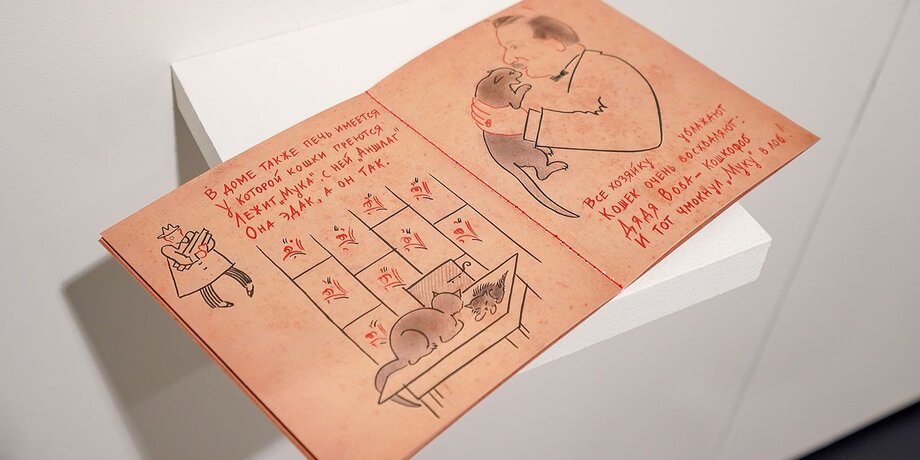 В ДОМЕ ТАКЖЕ ПЕЧЬ ИМЕЕТСЯ
У КОТОРОЙ КОШКИ ГРЕЮТСЯ
ЛЕЖИТ „МУКА“. С НЕЙ „АНШЛАГ“
ОНА ЭДАК, А ОН ТАК.
ВСЕ ХОЗЯЙКУ УБЛАЖАЮТ
КОШЕК ОЧЕНЬ ВОСХВАЛЯЮТ:
ДЯДЯ ВОВА – КОШКОФОБ
И ТОТ ЧМОКНУЛ „МУКУ“ В ЛОБ!